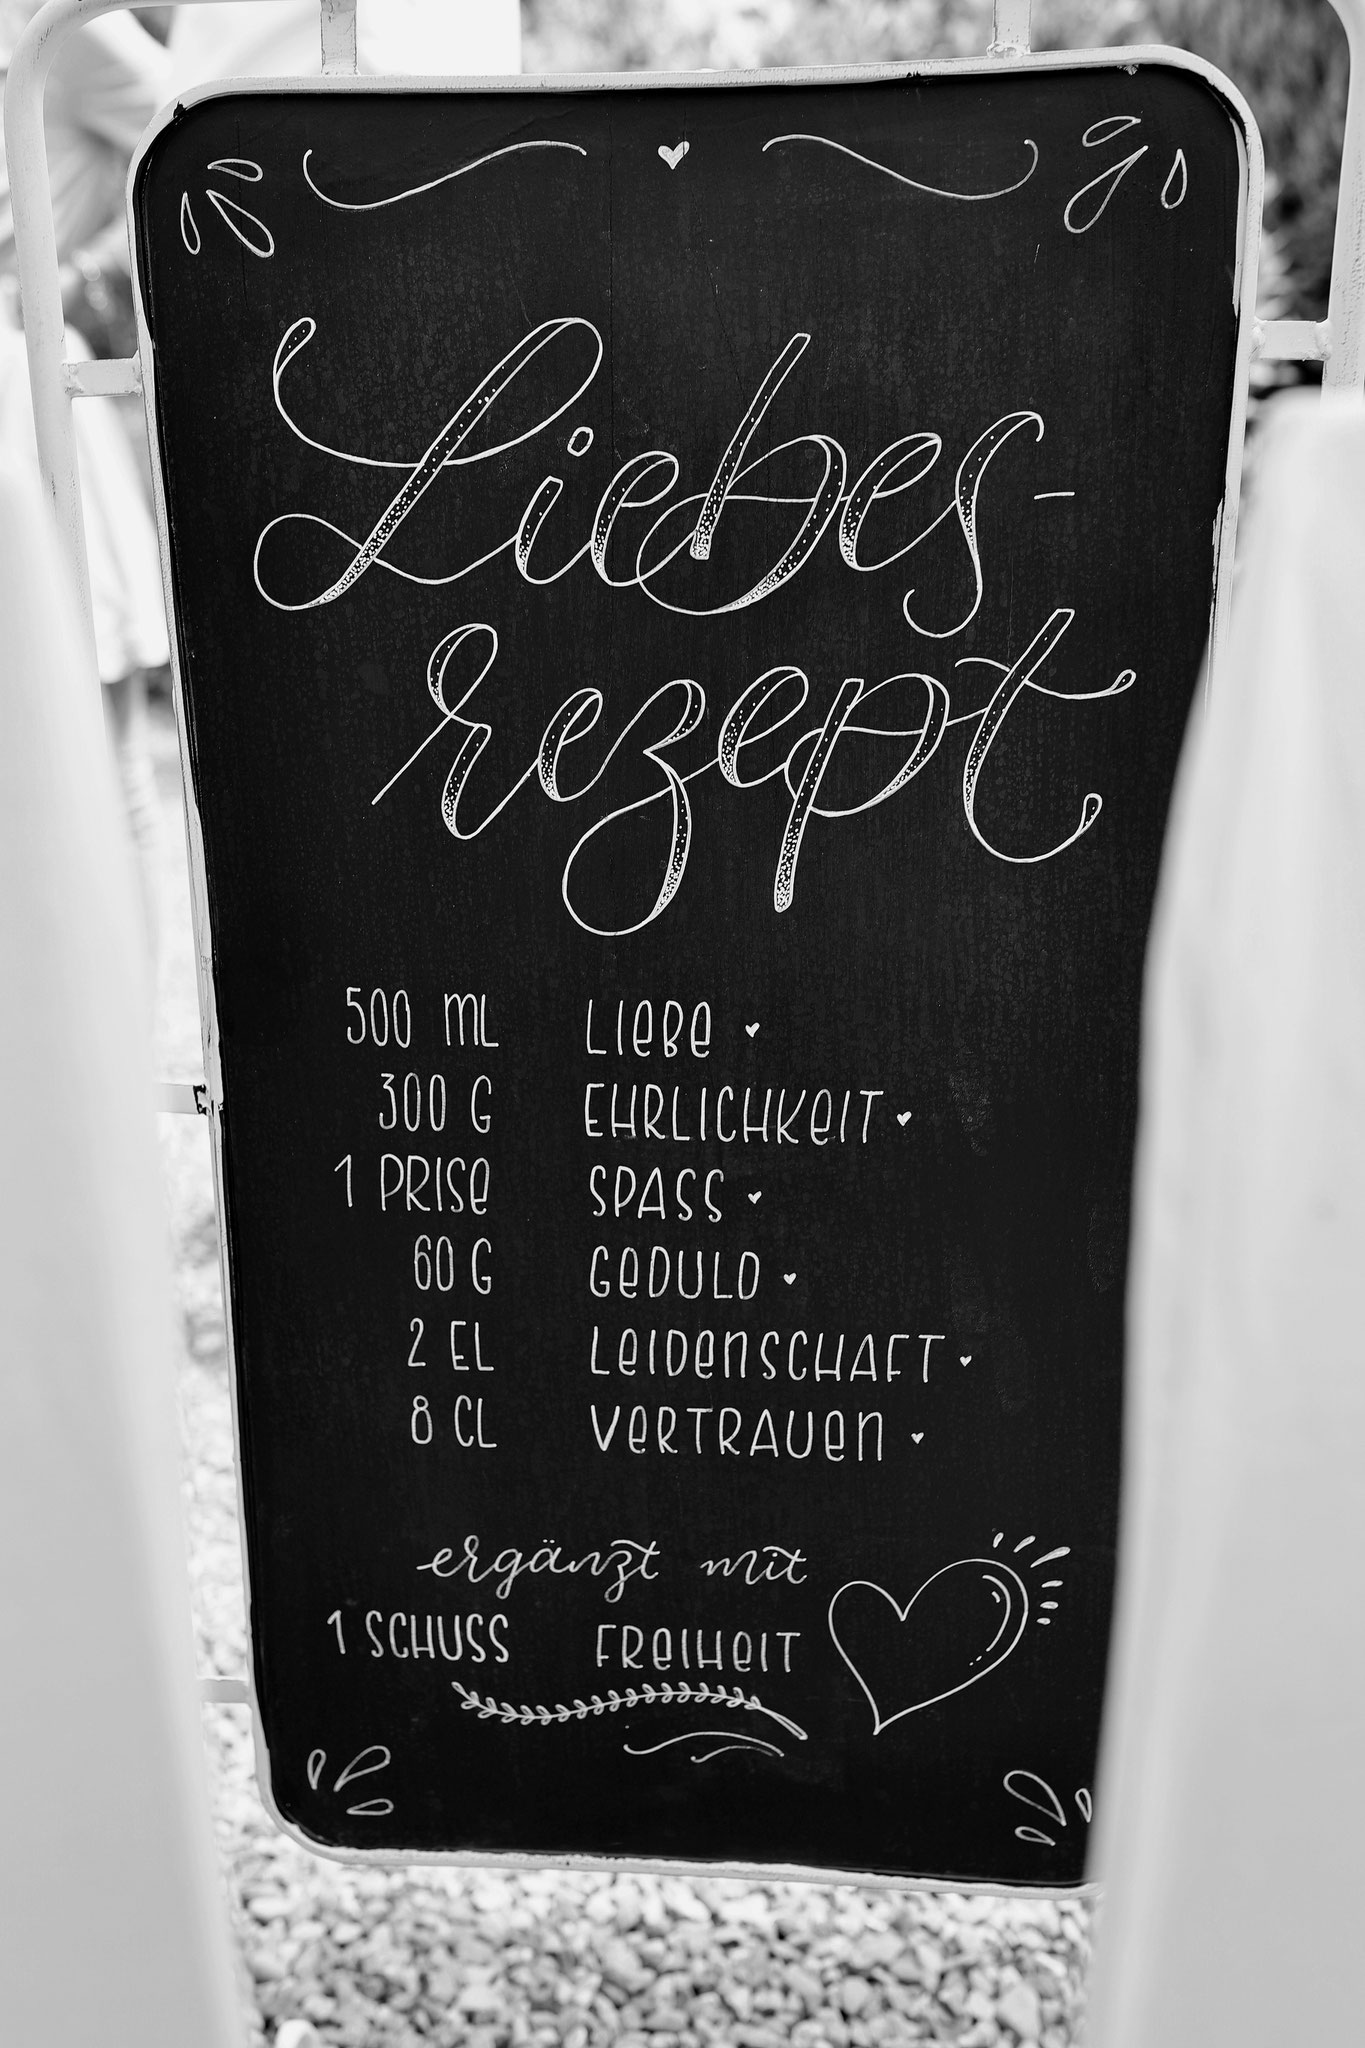 Liebes-
rezept
500 ML LIEBE
300 G EHRLICHKEIT
1 PRISE SPASS
60 G GEDULD
2 EL LEIDENSCHAFT
8 CL VERTRAUEN
ergänzt mit
1 SCHUSS FREIHEIT